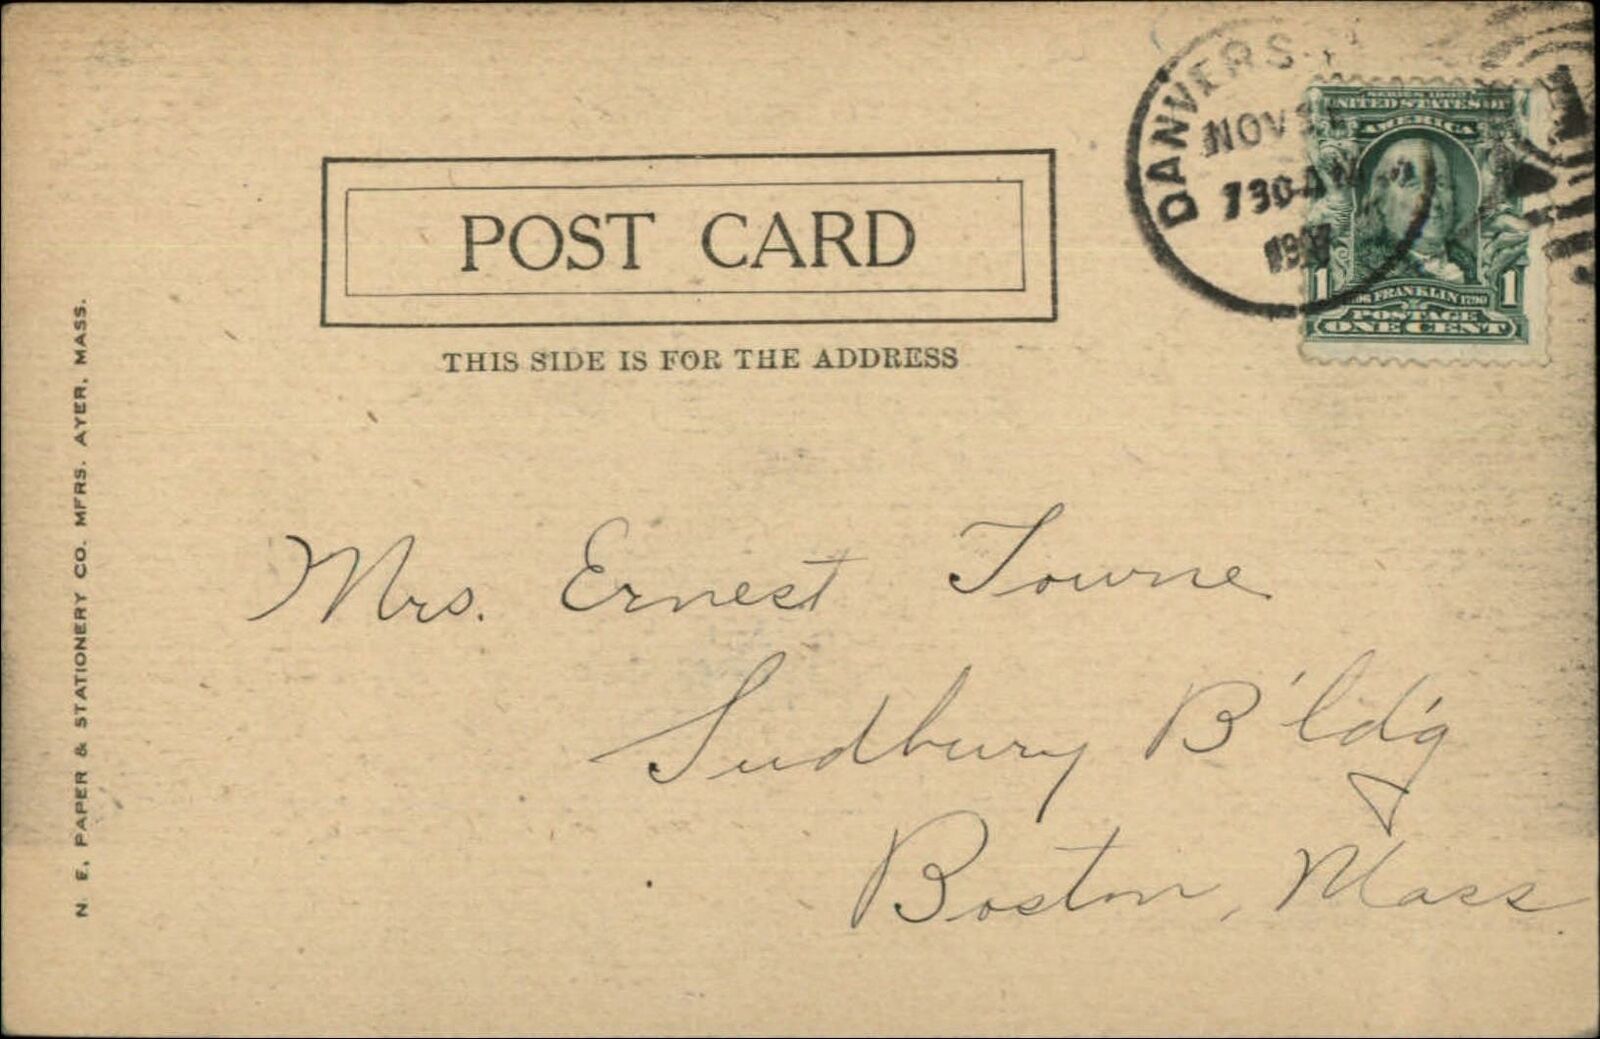 DANVERS
NOV
730 AM
SERIES 1902
UNITED STATES OF
AMERICA
1 FRANKLIN 1790 1
POSTAGE
ONE CENT
POST CARD
THIS SIDE IS FOR THE ADDRESS
N. E. PAPER & STATIONERY CO. MFRS. AYER, MASS.
Mrs. Ernest Towne
Sudbury B'ld'g
Boston, Mass